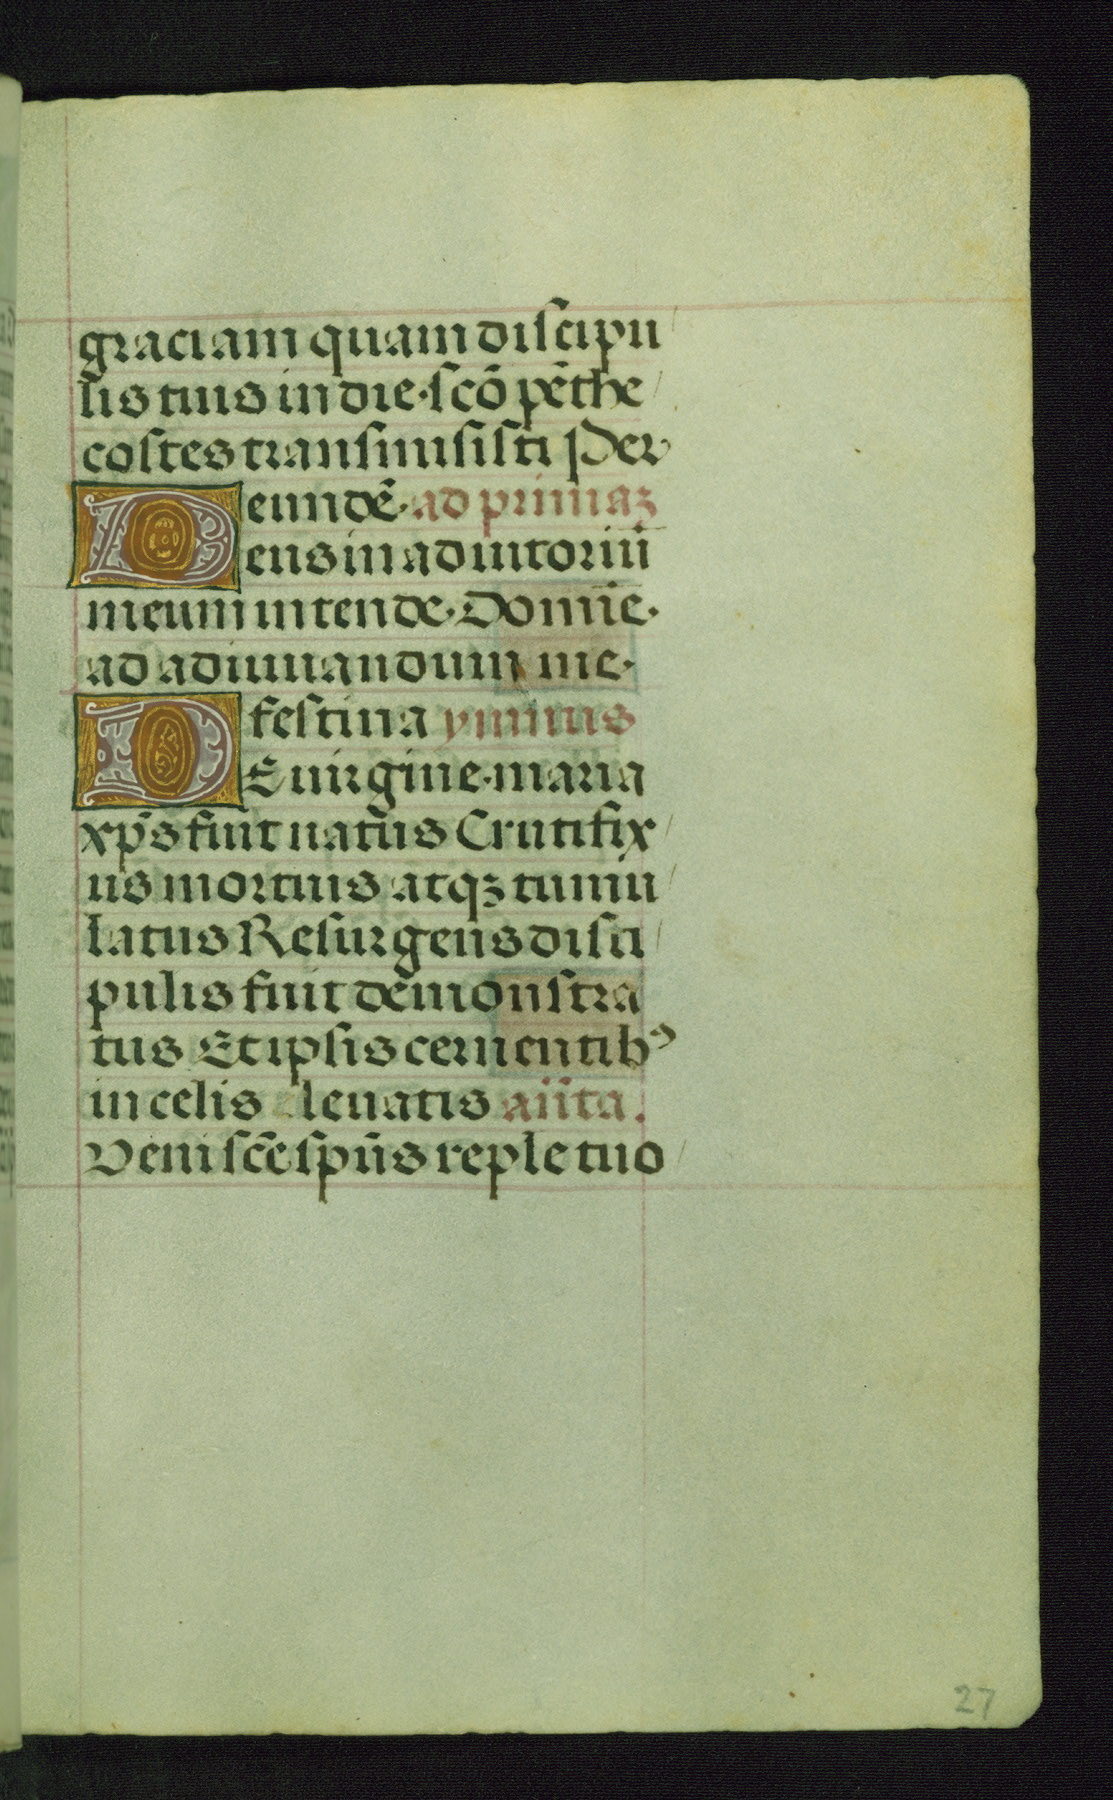 graciam quam discipu
lis tuis in die·scō pēthe
costes transmisisti Per
eundē·ad primaꝫ
Deus in adiutoriū
meum intende·Domīe·
ad adiuuandum me·
festina ymnus
DE uirgine·maria
xp̄s fuit natus Crutifix
us mortuus atqꝫ tumu
latus Resurgens disci
pulis fuit demonstra
tus Et ipsis cernentibꝰ
in celis eleuatis añta.
Veni scē spūs reple tuo
27